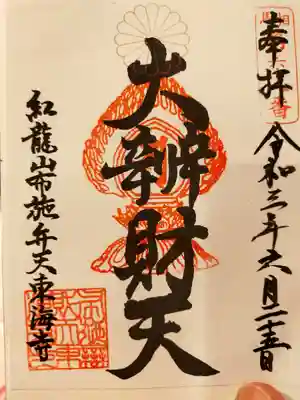 奉拝
令和三年六月二十五日
大辨財天
紅龍山布施弁天東海寺